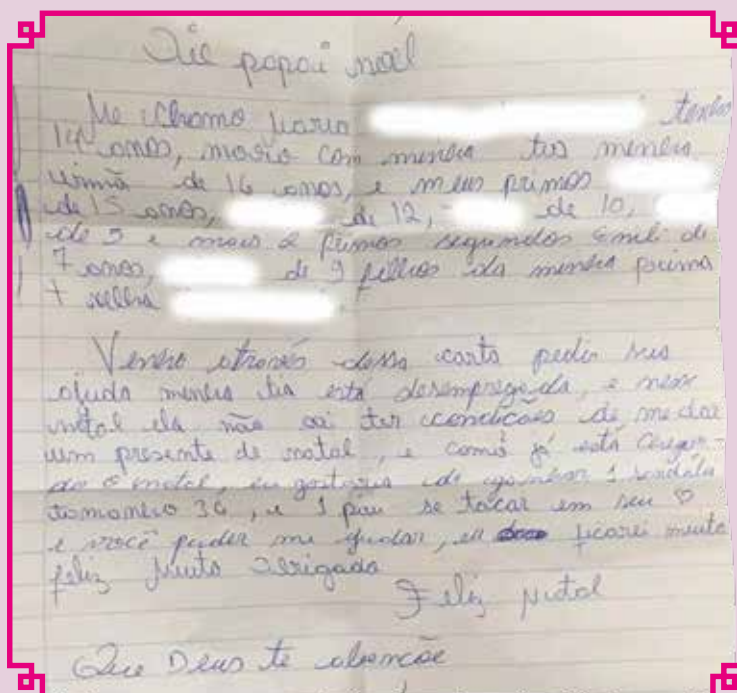 Oie papai noel
Me chamo Maria tenho
14 anos, moro com minha tia minha
irmã de 16 anos, e meus primos
de 15 anos, de 12, de 10,
de 5 e mais 2 primos segundos Emili de
7 anos, de 9 filhos da minha prima
+ velha
Venho através dessa carta pedir sua
ajuda minha tia está desempregada, e nesse
natal ela não vai ter condicões de me dar
um presente de natal, e como já está chegan-
do o natal, eu gostaria de ganhar 1 sandália
tamanho 36, e 1 se tocar em seu ♡
e você puder me ajudar, eu ficarei muito
feliz Muito Obrigada
Feliz natal
Que Deus te abençoe